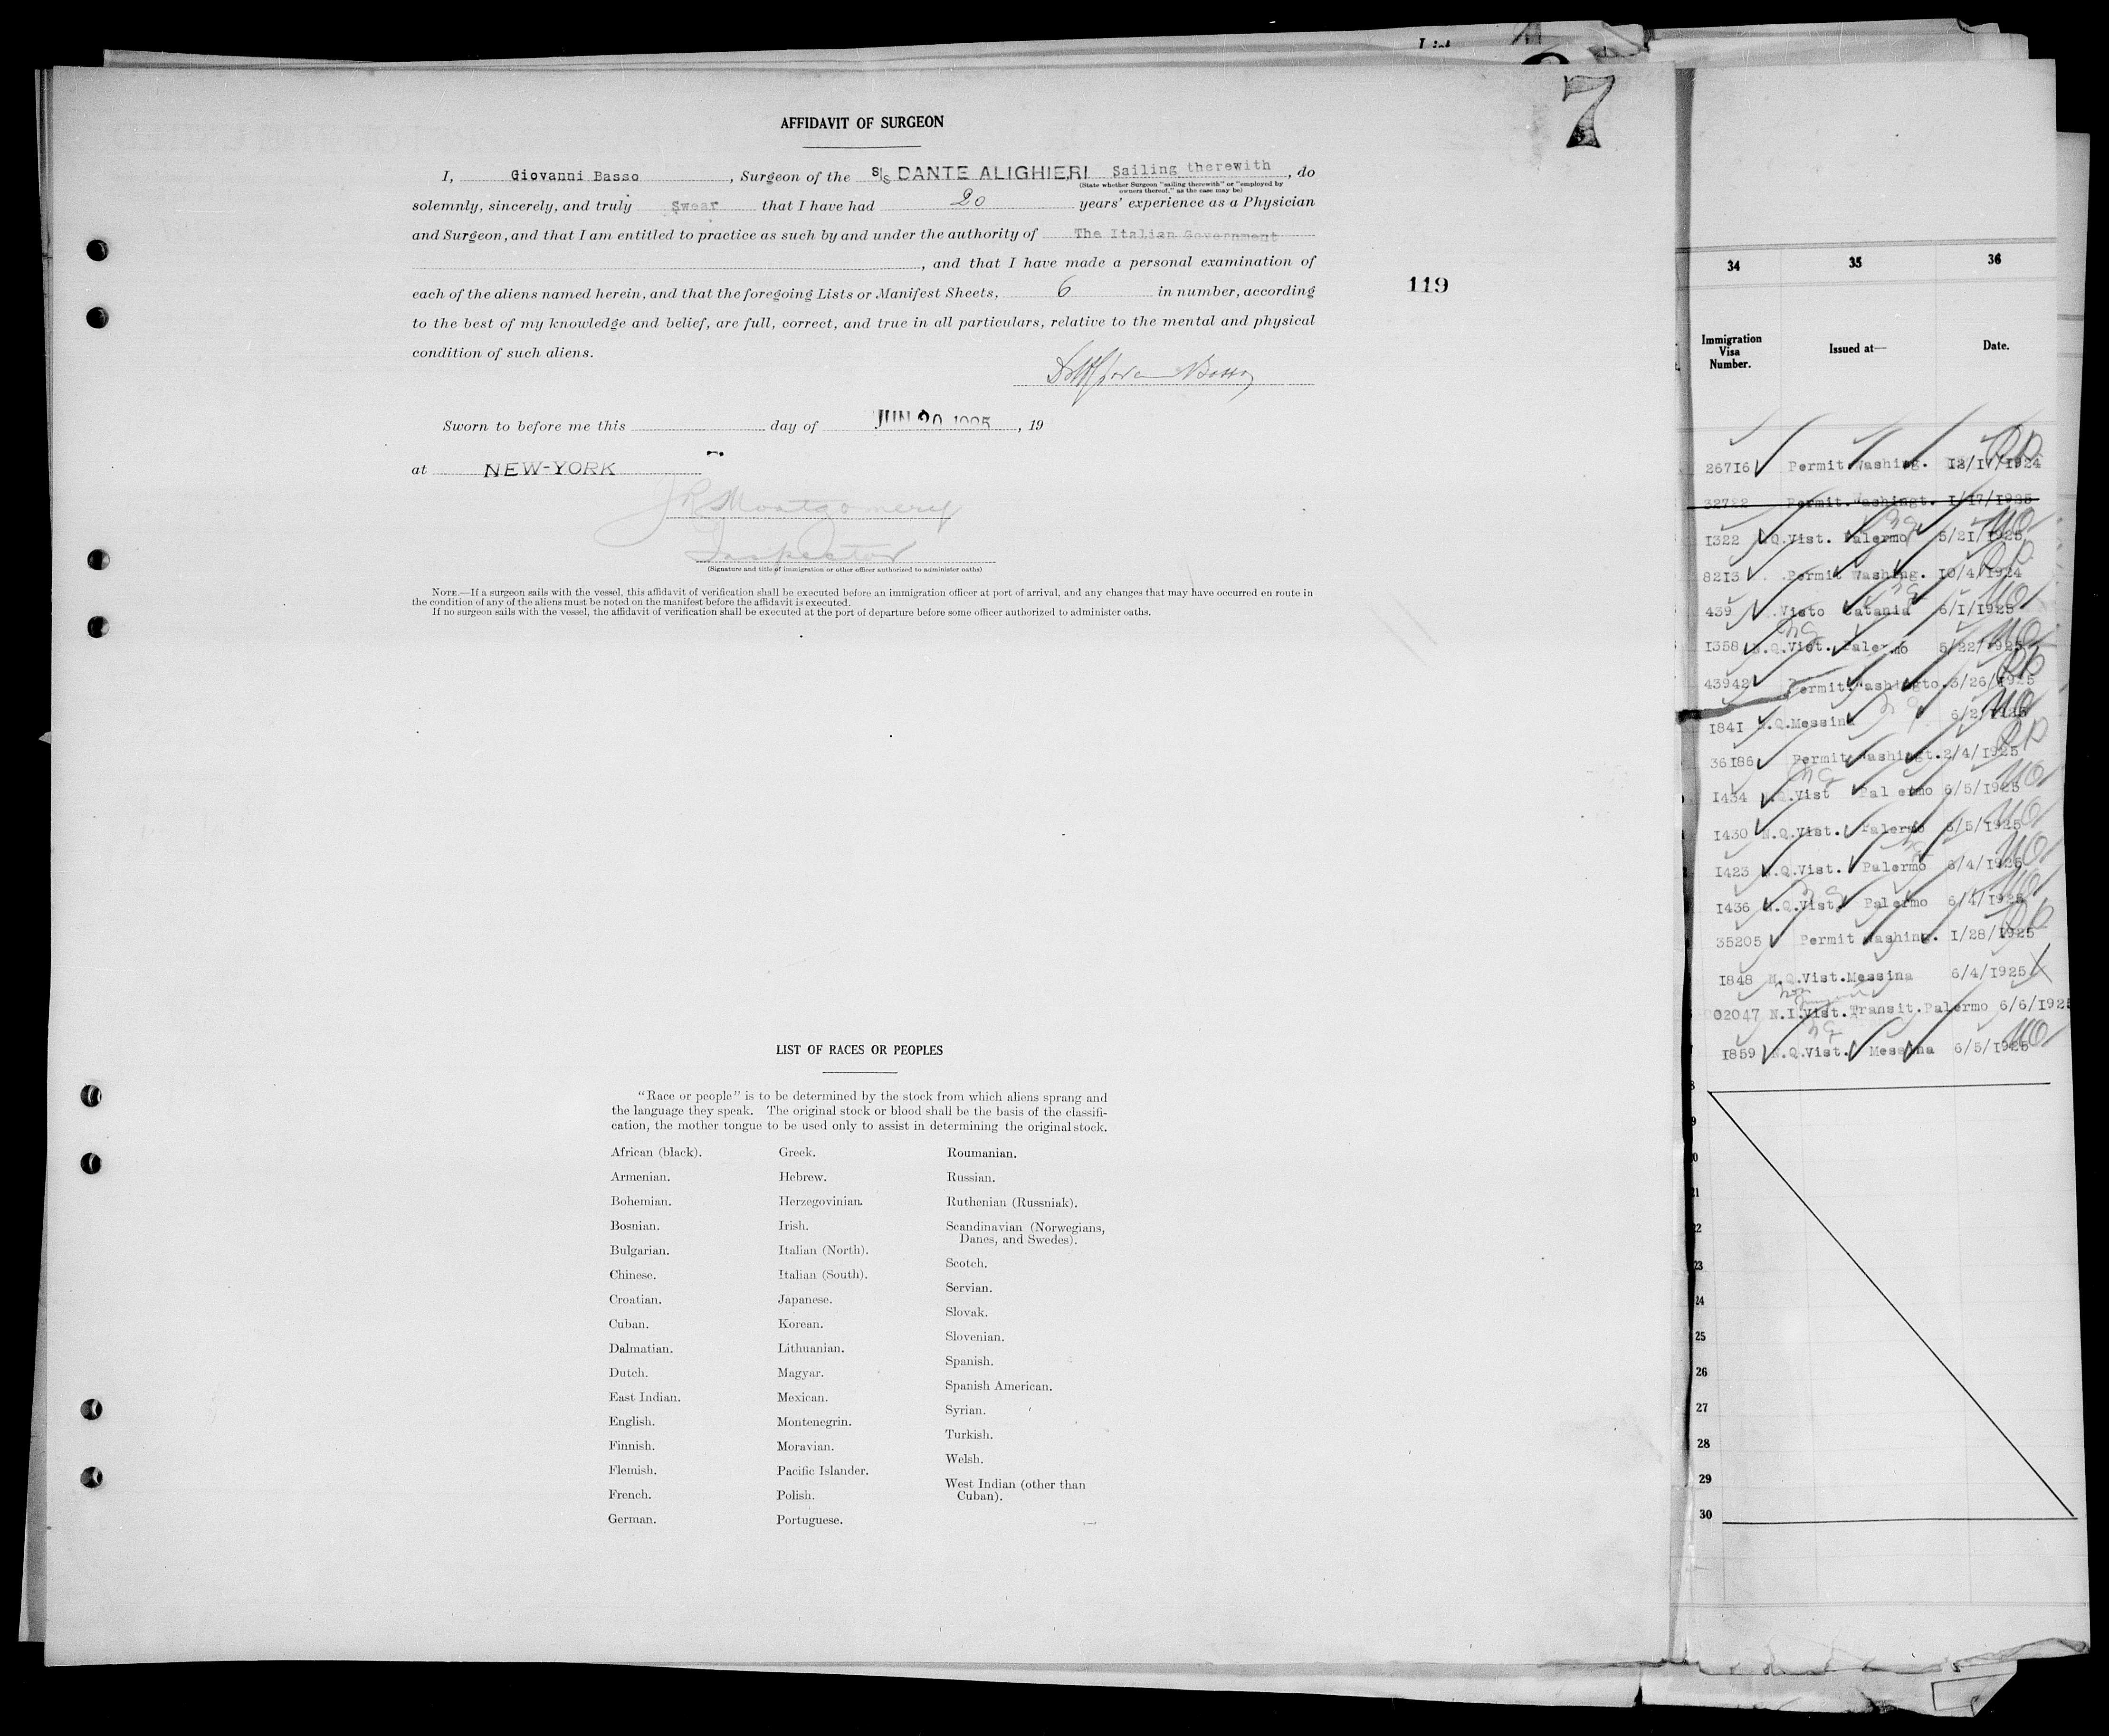 7
AFFIDAVIT OF SURGEON
I, Giovanni Basso, Surgeon of the S/S DANTE ALIGHIERI Sailing therewith, do
(State whether Surgeon "sailing therewith" or "employed by
owners thereof," as the case may be)
solemnly, sincerely, and truly Swear that I have had 20 years' experience as a Physician
and Surgeon, and that I am entitled to practice as such by and under the authority of The Italian Government
, and that I have made a personal examination of
each of the aliens named herein, and that the foregoing Lists or Manifest Sheets, 6 in number, according
119
to the best of my knowledge and belief, are full, correct, and true in all particulars, relative to the mental and physical
condition of such aliens.
Sworn to before me this day of JUN 20 1925, 19
at NEW-YORK
J R Montgomery
Inspector
(Signature and title of immigration or other officer authorized to administer oaths)
NOTE.—If a surgeon sails with the vessel, this affidavit of verification shall be executed before an immigration officer at port of arrival, and any changes that may have occurred en route in
the condition of any of the aliens must be noted on the manifest before the affidavit is executed.
If no surgeon sails with the vessel, the affidavit of verification shall be executed at the port of departure before some officer authorized to administer oaths.
LIST OF RACES OR PEOPLES
"Race or people" is to be determined by the stock from which aliens sprang and
the language they speak. The original stock or blood shall be the basis of the classifi-
cation, the mother tongue to be used only to assist in determining the original stock.
African (black).
Armenian.
Bohemian.
Bosnian.
Bulgarian.
Chinese.
Croatian.
Cuban.
Dalmatian.
Dutch.
East Indian.
English.
Finnish.
Flemish.
French.
German.
Greek.
Hebrew.
Herzegovinian.
Irish.
Italian (North).
Italian (South).
Japanese.
Korean.
Lithuanian.
Magyar.
Mexican.
Montenegrin.
Moravian.
Pacific Islander.
Polish.
Portuguese.
Roumanian.
Russian.
Ruthenian (Russniak).
Scandinavian (Norwegians,
Danes, and Swedes).
Scotch.
Servian.
Slovak.
Slovenian.
Spanish.
Spanish American.
Syrian.
Turkish.
Welsh.
West Indian (other than
Cuban).
34 35 36
Immigration
Visa
Number.
Issued at—
Date.
26716 Permit Washing. 12/17/1924
32722 Permit. Washingt. 1/17/1925
1322 N.Q.Vist. Palermo 5/21/1925
8213 Permit Washing. 10/4/1924
439 Visto Catania 6/1/1925
1358 N.Q.Vist. Palermo 5/22/1925
43942 Permit.Washingto. 3/26/1925
1841 N.Q.Messina 6/2/1925
36186 Permit Washingt. 2/4/1925
1434 N.Q.Vist Palermo 6/5/1925
1430 N.Q.Vist. Palermo 6/5/1925
1423 N.Q.Vist. Palermo 6/4/1925
1436 N.Q.Vist. Palermo 6/4/1925
35205 Permit Washing. 1/28/1925
1848 N.Q.Vist.Messina 6/4/1925
02047 N.I.Vist.Transit.Palermo 6/6/1925
1859 N.Q.Vist. Messina 6/5/1925
24
25
26
27
28
29
30